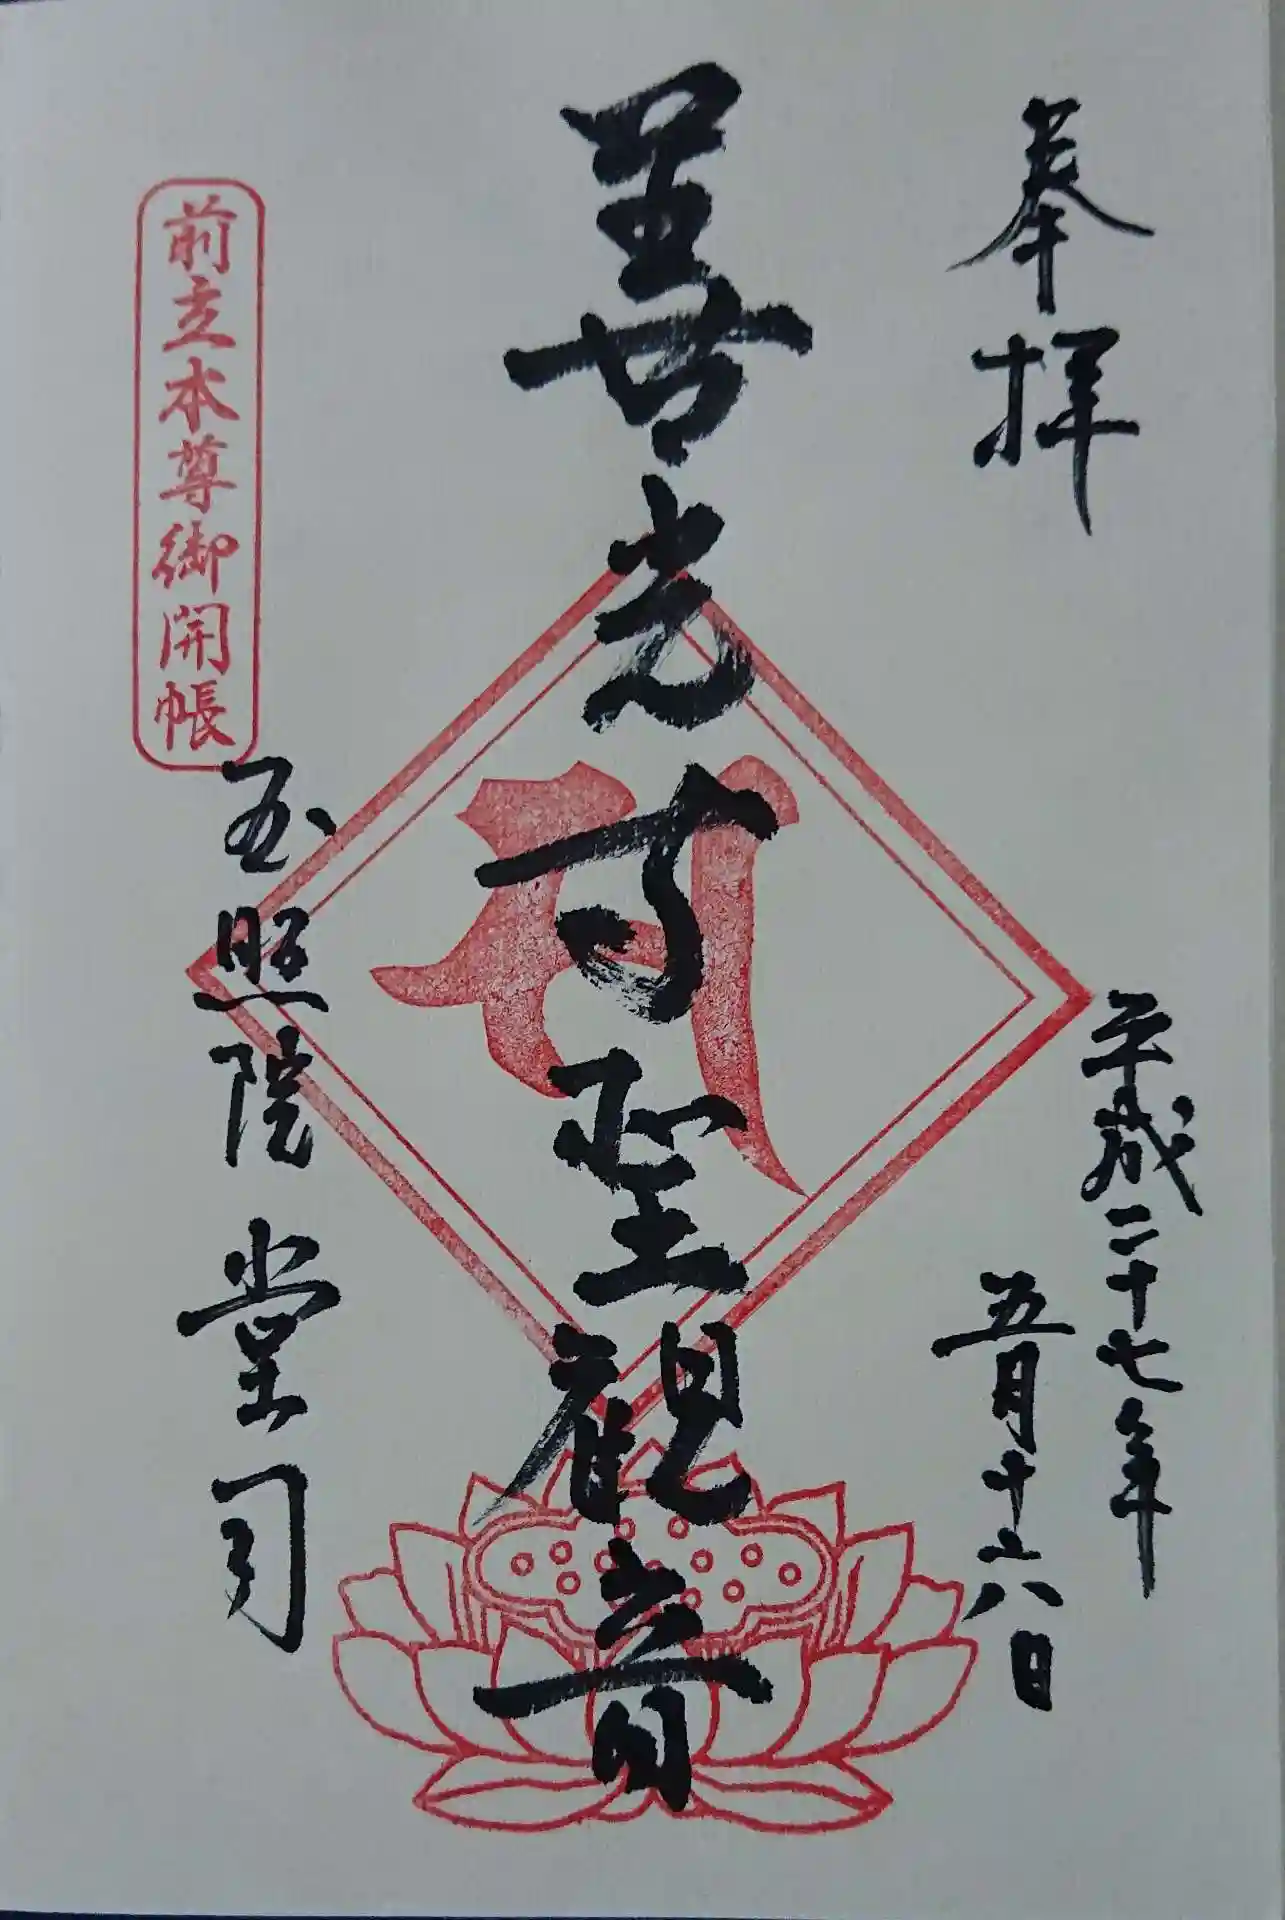 奉拝
平成二十七年
五月十六日
善光寺聖観音
サ
前立本尊御開帳
玉照院 堂司